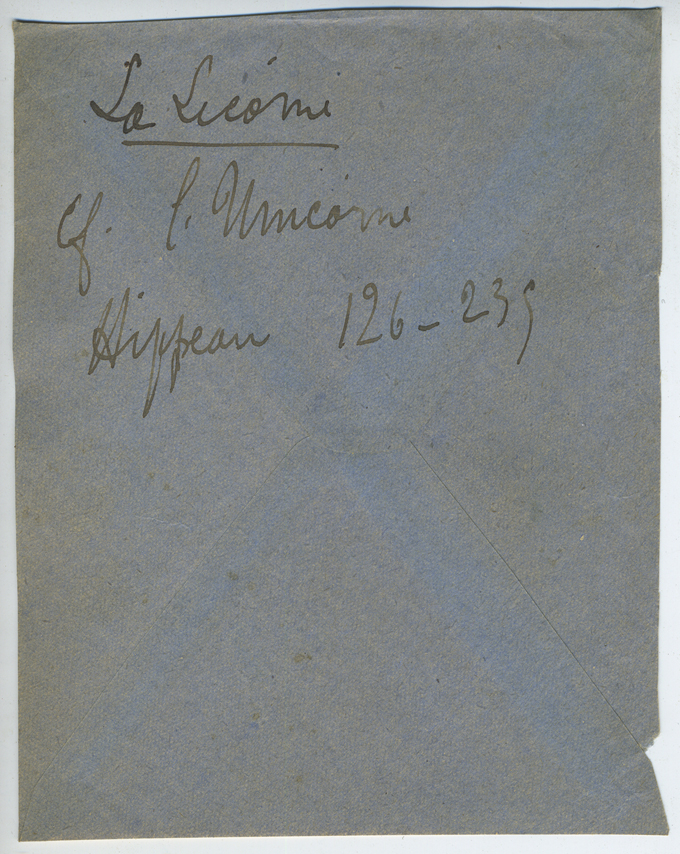 La Licorne
Cf. l'Unicorne
Hippeau 126-235